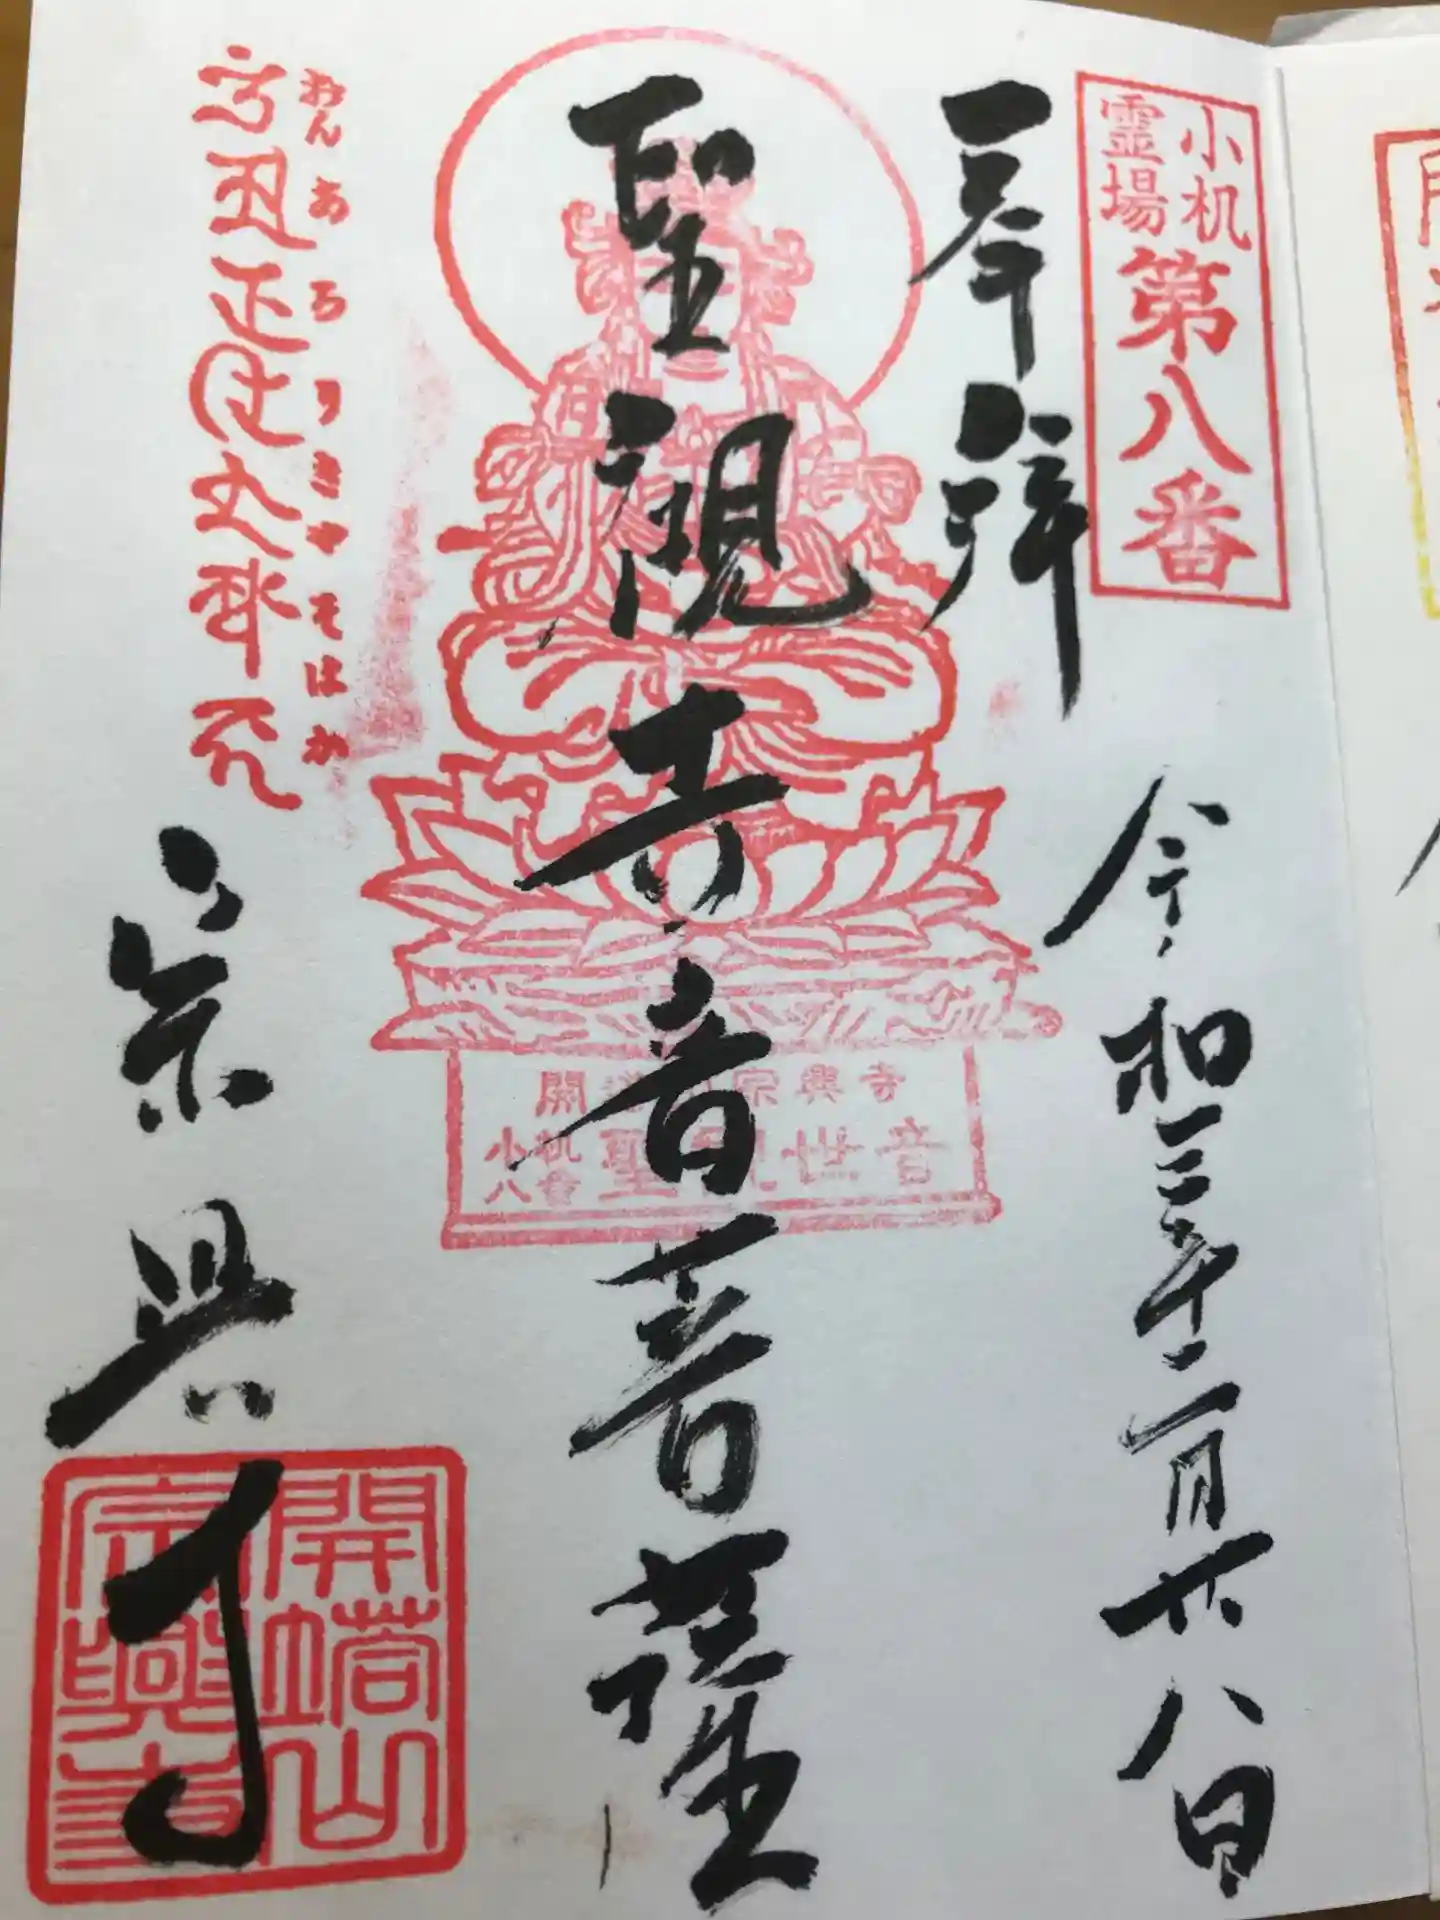 小机
霊場
第八番
奉拝
令和三年二月廿八日
聖観世音菩薩
開塔山宗興寺
小机
八番
聖観世音
おんあろりきやそはか
宗興寺
開塔山
宗興寺